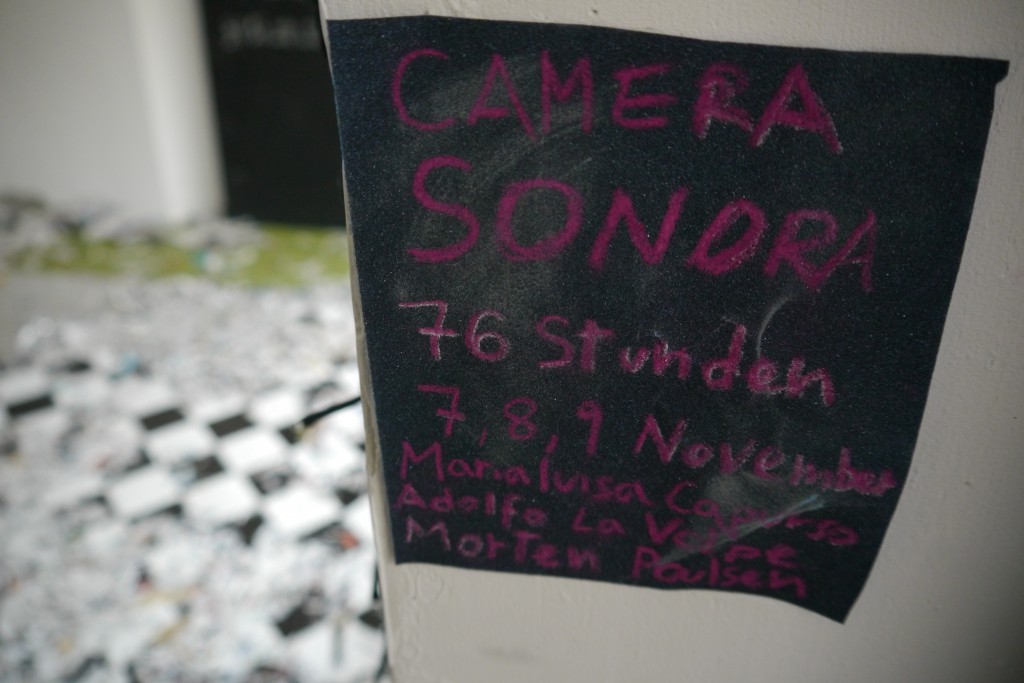 CAMERA
SONDRA
76 Stunden
7, 8, 9 November
Marialuisa Capurso
Adolfo La Volpe
Morten Poulsen